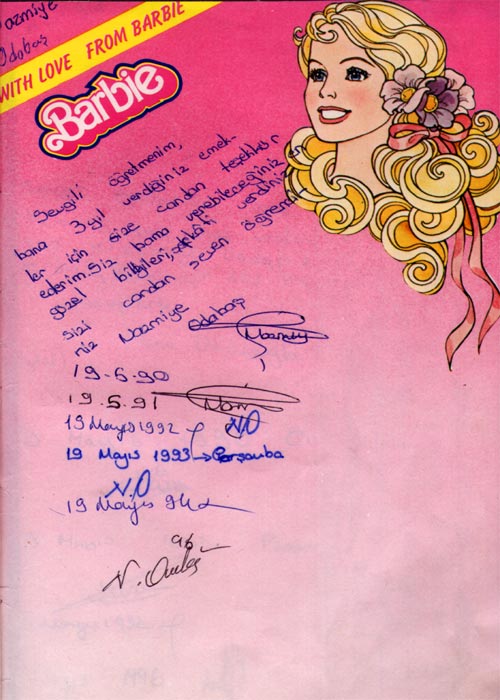 azmiye
Odabaş
WITH LOVE FROM BARBIE
Barbie
Sevgili öğretmenim,
bana 3 yıl verdiğiniz emek-
ler için size candan teşekkür
ederim. Siz bana verebileceğiniz en
güzel bilgileri, şefkati verdiniz
sizi candan seven öğrenci-
niz Nazmiye Odabaş
19.6.90
19.5.91
19 Mayıs 1992
N.O
19 Mayıs 1993 → Perşamba
N.O
19 Mayıs 94
96